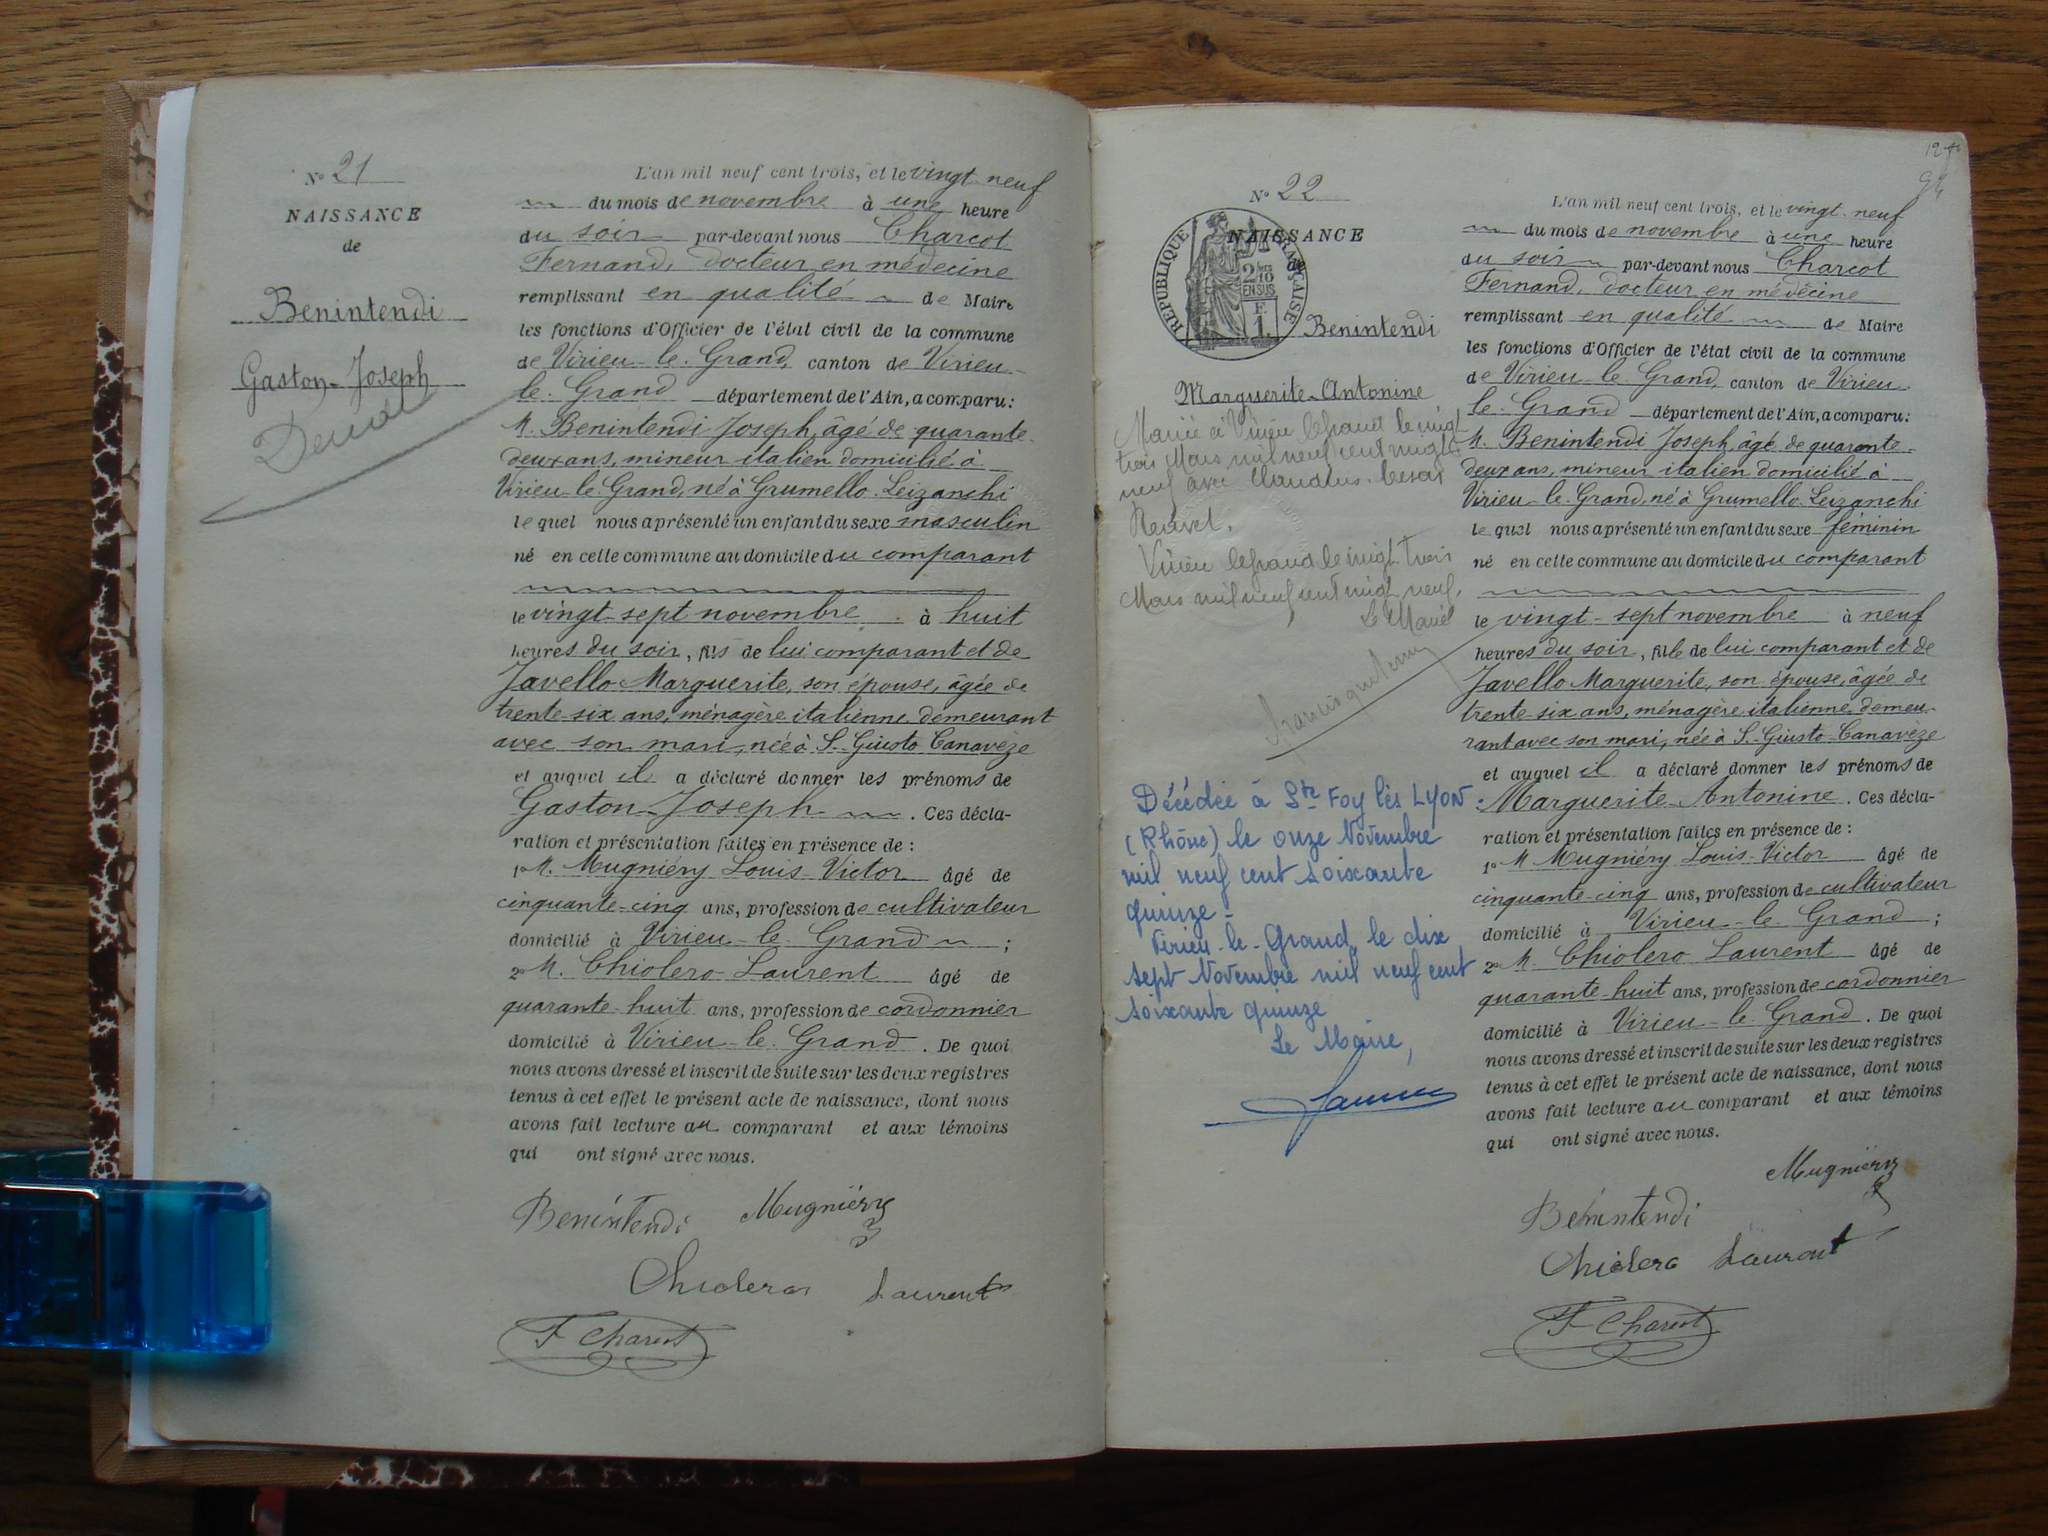 N° 21
NAISSANCE
de
Benintendi
Gaston-Joseph
L'an mil neuf cent trois, et le vingt-neuf
du mois de novembre à une heure
du soir par-devant nous Charcot
Fernand, docteur en médecine
remplissant en qualité de Maire
les fonctions d'Officier de l'état civil de la commune
de Virieu-le-Grand, canton de Virieu-
le-Grand département de l'Ain, a comparu:
M. Benintendi Joseph, âgé de quarante-
deux ans, mineur italien domicilié à
Virieu-le-Grand, né à Grumello
le quel nous a présenté un enfant du sexe masculin
né en cette commune au domicile du comparant
le vingt-sept novembre à huit
heures du soir, fils de lui comparant et de
Javello Marguerite, son épouse, âgée de
trente-six ans, ménagère italienne demeurant
avec son mari, née à S. Giusto Canavèze
et auquel il a déclaré donner les prénoms de
Gaston-Joseph. Ces décla-
ration et présentation faites en présence de:
1° M. Mugniéry Louis-Victor âgé de
cinquante-cinq ans, profession de cultivateur
domicilié à Virieu-le-Grand;
2° M. Chiolero Laurent âgé de
quarante-huit ans, profession de cordonnier
domicilié à Virieu-le-Grand. De quoi
nous avons dressé et inscrit de suite sur les deux registres
tenus à cet effet le présent acte de naissance, dont nous
avons fait lecture au comparant et aux témoins
qui ont signé avec nous.
Benintendi Mugniéry
Chiolero Laurent
F Charcot
N° 22
NAISSANCE
de
RÉPUBLIQUE FRANÇAISE
2/10 EN SUS
F. 1
Benintendi
Marguerite-Antonine
Mariée à Virieu le grand le vingt
trois Mars mil neuf cent vingt
neuf avec Claudius
Virieu le grand le vingt trois
Mars mil neuf cent vingt neuf.
Décédée à Ste Foy lès LYON
(Rhône) le onze Novembre
mil neuf cent soixante
quinze-
Virieu-le-Grand, le dix
sept Novembre mil neuf cent
soixante quinze
Le Maire,
L'an mil neuf cent trois, et le vingt-neuf
du mois de novembre à une heure
du soir par-devant nous Charcot
Fernand, docteur en médecine
remplissant en qualité de Maire
les fonctions d'Officier de l'état civil de la commune
de Virieu-le-Grand, canton de Virieu-
le-Grand département de l'Ain, a comparu:
M. Benintendi Joseph, âgé de quarante-
deux ans, mineur italien domicilié à
Virieu-le-Grand, né à Grumello
le quel nous a présenté un enfant du sexe féminin
né en cette commune au domicile du comparant
le vingt-sept novembre à neuf
heures du soir, fille de lui comparant et de
Javello Marguerite, son épouse, âgée de
trente-six ans, ménagère italienne demeu-
rant avec son mari, née à S. Giusto-Canavèze
et auquel il a déclaré donner les prénoms de
Marguerite-Antonine. Ces décla-
ration et présentation faites en présence de:
1° M Mugniéry Louis-Victor âgé de
cinquante-cinq ans, profession de cultivateur
domicilié à Virieu-le-Grand;
2° M. Chiolero Laurent âgé de
quarante-huit ans, profession de cordonnier
domicilié à Virieu-le-Grand. De quoi
nous avons dressé et inscrit de suite sur les deux registres
tenus à cet effet le présent acte de naissance, dont nous
avons fait lecture au comparant et aux témoins
qui ont signé avec nous.
Mugniéry
Benintendi
Chiolero Laurent
F Charcot